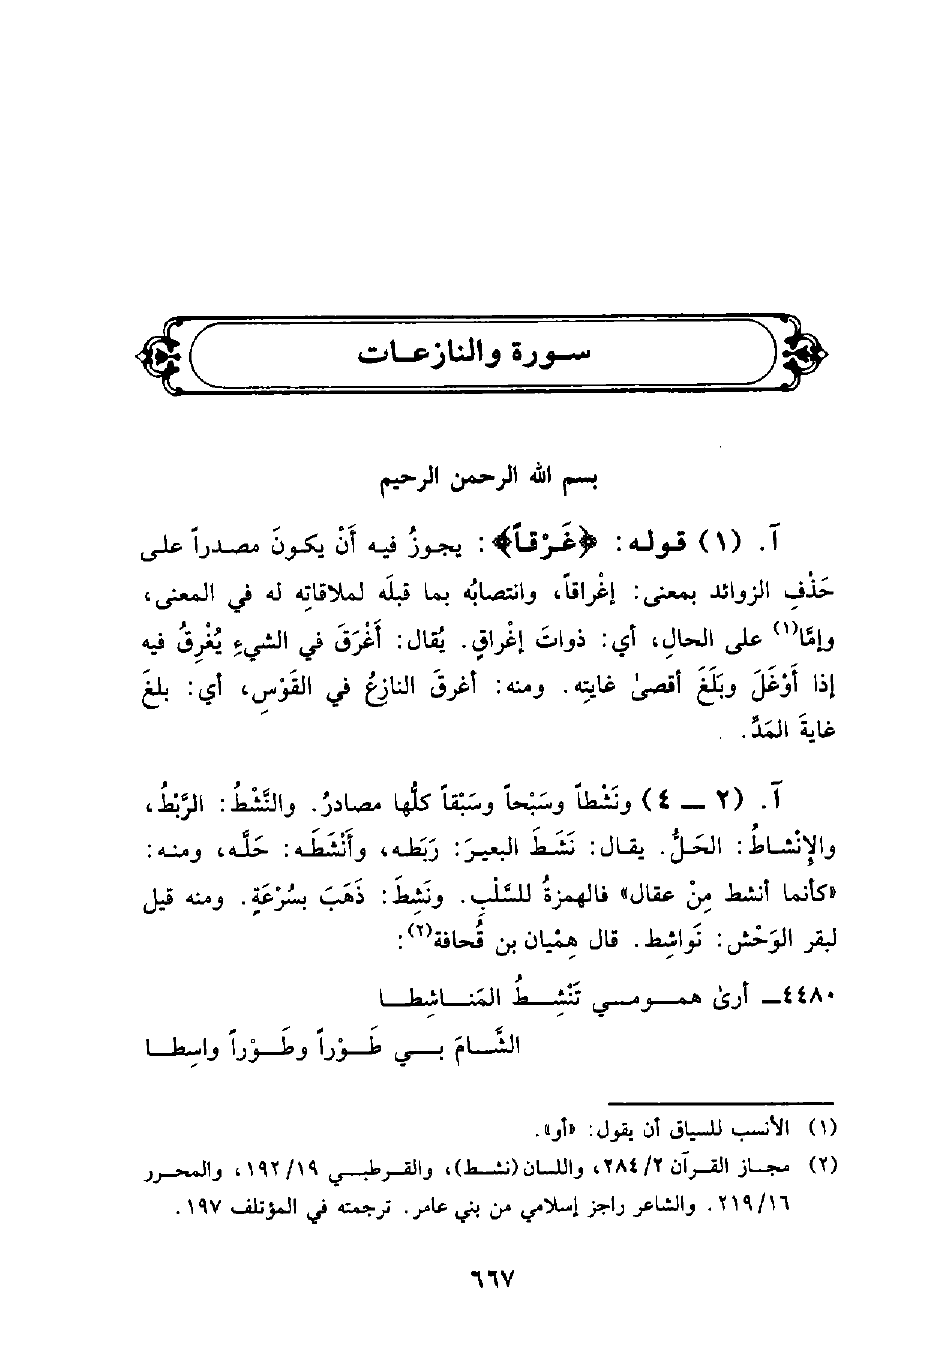 سورة والنازعات
بسم الله الرحمن الرحيم
آ. (١) قوله: ﴿غَرْقاً﴾: يجوزُ فيه أَنْ يكونَ مصدراً على
حَذْفِ الزوائد بمعنى: إغْراقاً، وانتصابُه بما قبلَه لملاقاتِه له في المعنى،
وإمَّا(١) على الحالِ، أي: ذواتَ إغْراقٍ. يُقال: أَغْرَقَ في الشيءِ يُغْرِقُ فيه
إذا أَوْغَلَ وبَلَغَ أقصىٰ غايتِه. ومنه: أغرقَ النازعُ في القَوْسِ، أي: بلغَ
غايةَ المَدِّ.
آ. (٢ ــ ٤) ونَشْطاً وسَبْحاً وسَبْقاً كلُّها مصادرُ. والنَّشْطُ: الرَّبْطُ،
والإِنْشاطُ: الحَلُّ. يقال: نَشَطَ البعيرَ: رَبَطه، وأَنْشَطَه: حَلَّه، ومنه:
«كأنما أنشط مِنْ عقال» فالهمزةُ للسَّلْبِ. ونَشِطَ: ذَهَبَ بسُرْعَةٍ. ومنه قيل
لبقر الوَحْش: نَواشِط. قال هِمْيان بن قُحافة(٢):
٤٤٨٠ــ أرىٰ همومي تَنْشِطُ المَناشِطا
الشَّامَ بي طَوْراً وطَوْراً واسِطا
(١) الأنسب للسياق أن يقول: «أو».
(٢) مجاز القرآن ٢/ ٢٨٤، واللسان (نشط)، والقرطبي ١٩/ ١٩٢، والمحرر
١٦/ ٢١٩. والشاعر راجز إسلامي من بني عامر. ترجمته في المؤتلف ١٩٧.
٦٦٧